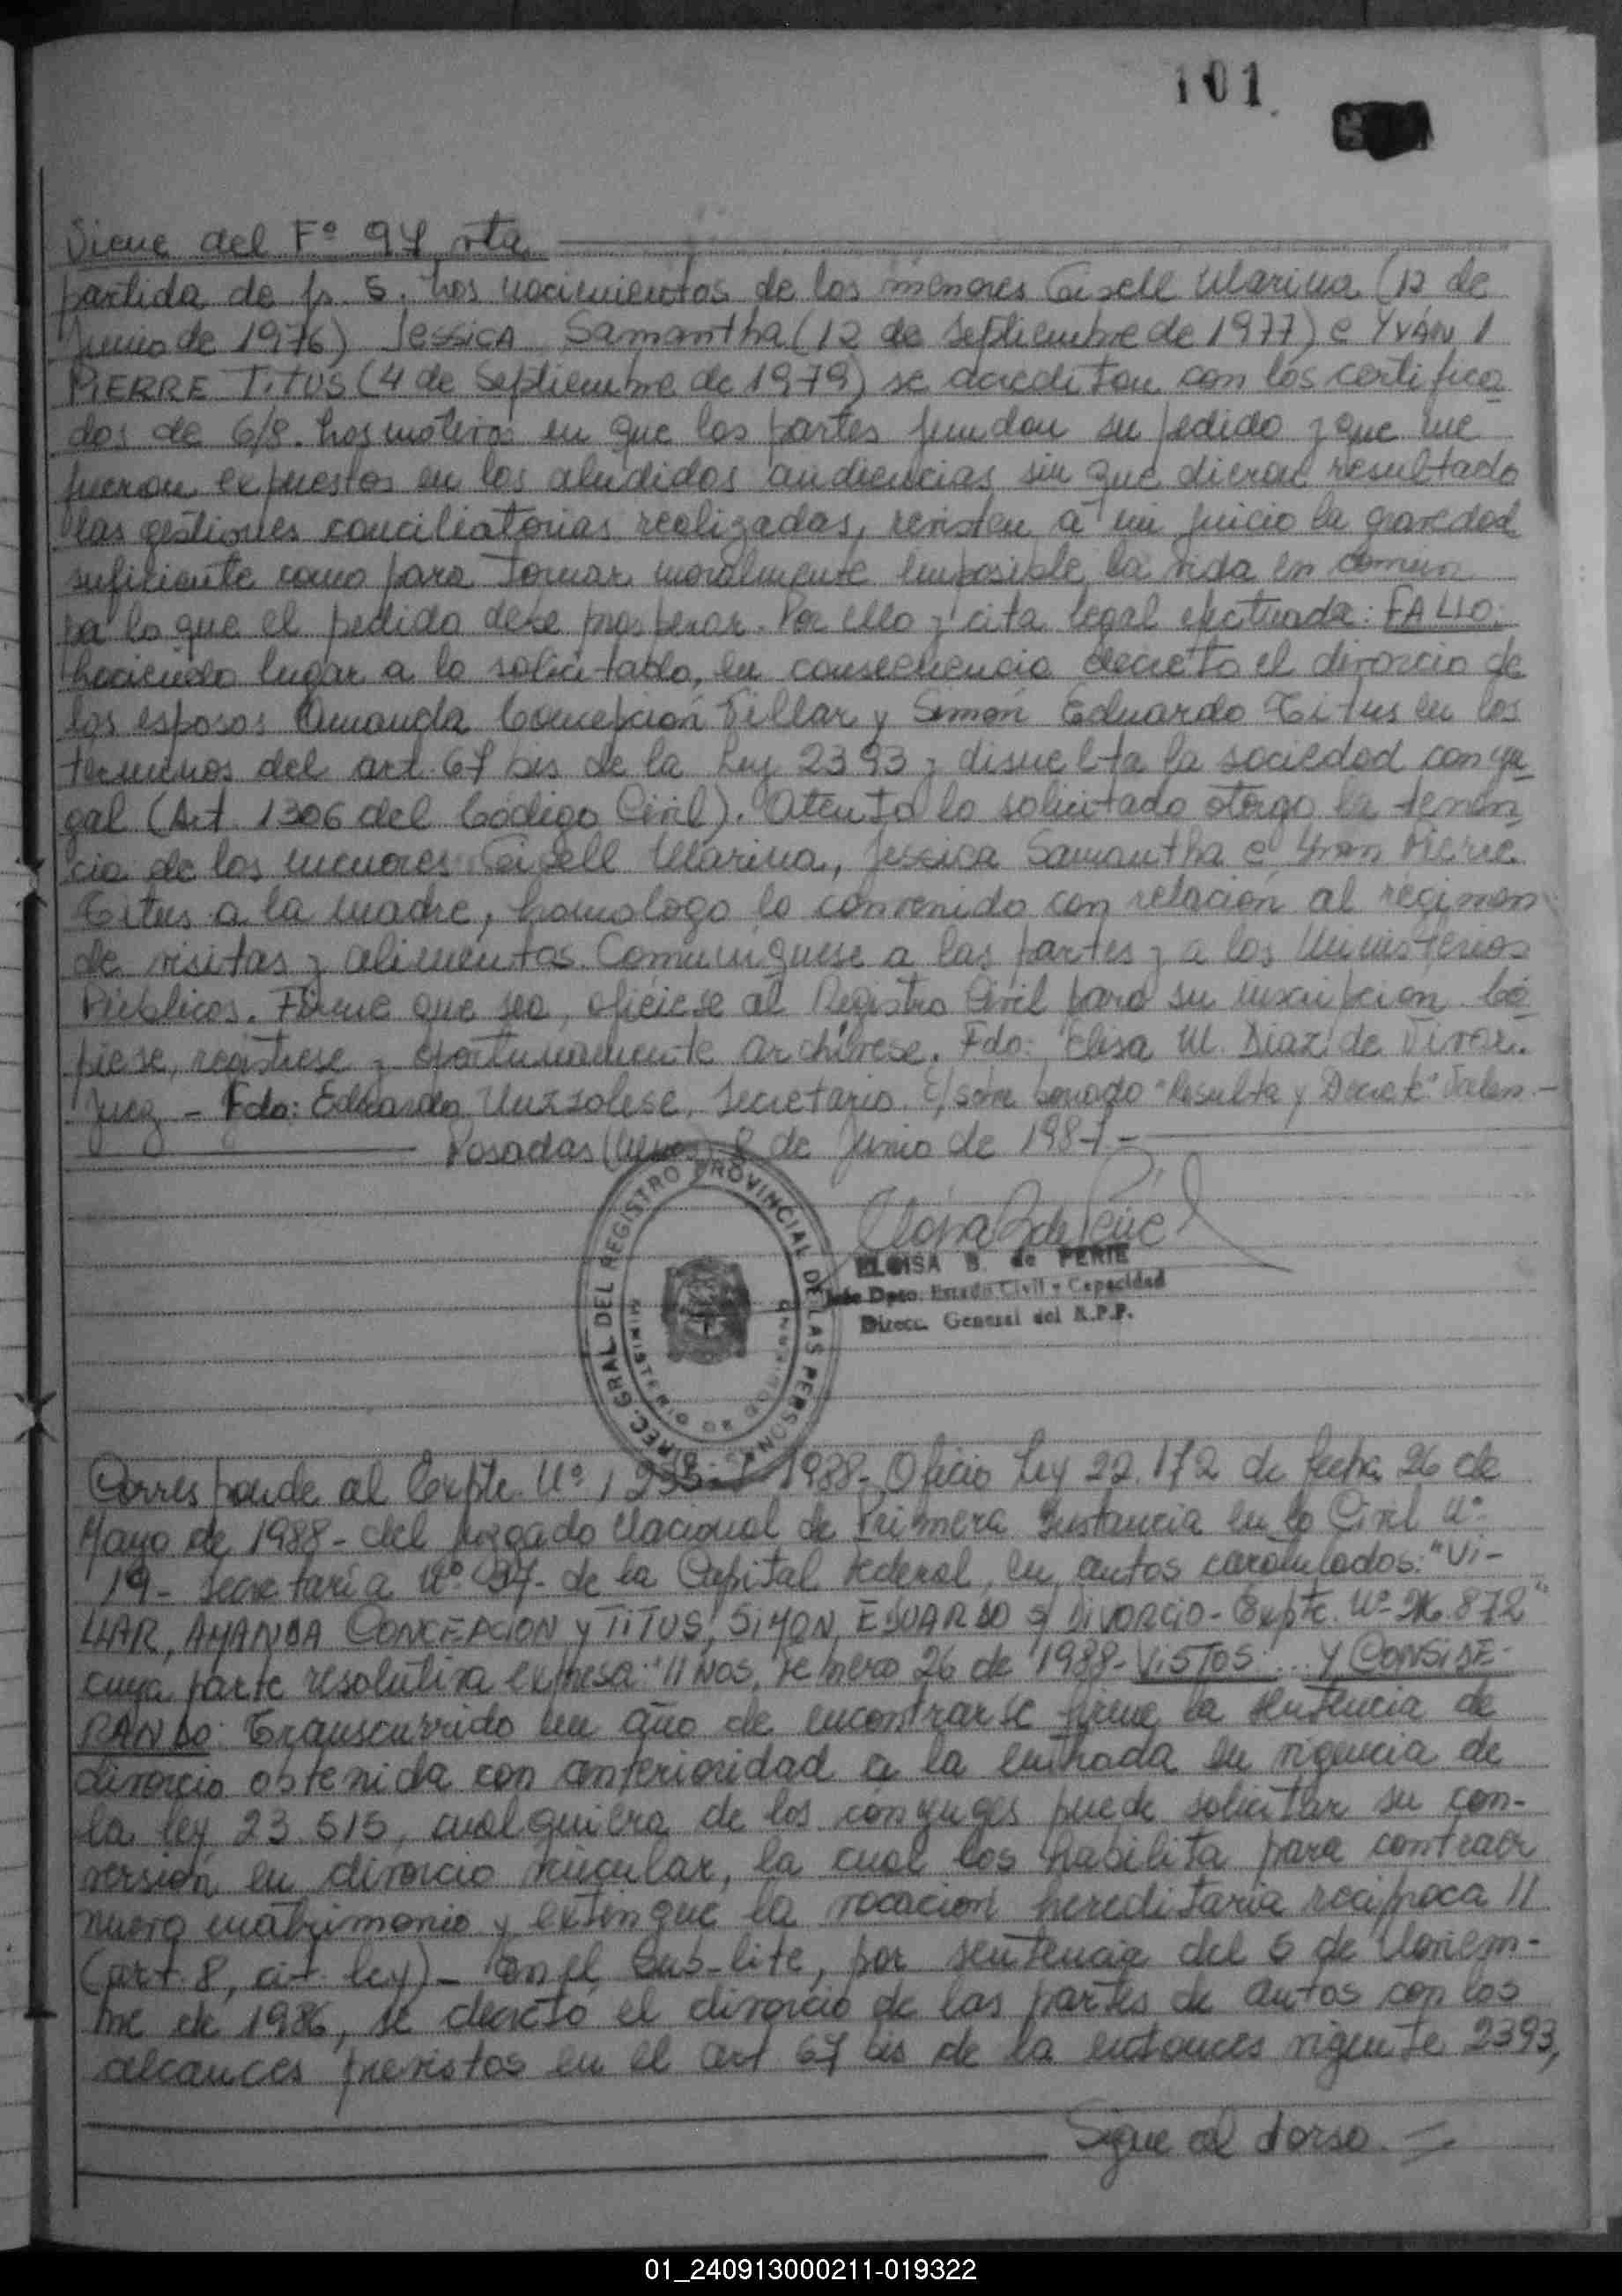 101
Viene del Fº 97 vta
partida de fs. 5. Los nacimientos de los menores Gisell Marina (12 de
Junio de 1976) Jessica Samantha (12 de Septiembre de 1977) e YVÁN
PIERRE TITUS (4 de Septiembre de 1979) se acreditan con los certifica-
dos de 6/8. Los motivos en que las partes fundan su pedido y que me
fueron expuestos en las aludidas audiencias sin que dieran resultado
las gestiones conciliatorias realizadas, revisten a mi juicio la gravedad
suficiente como para tornar moralmente imposible la vida en común
pa lo que el pedido debe prosperar. Por ello y cita legal efectuada: FALLO:
haciendo lugar a lo solicitado, en consecuencia decreto el divorcio de
los esposos Amanda Concepción Villar y Simón Eduardo Titus en los
términos del art. 67 bis de la Ley 2393 y disuelta la sociedad conyu-
gal (Art. 1306 del Código Civil). Atento lo solicitado otorgo la tenen-
cia de los menores Gisell Marina, Jessica Samantha e Yvan Pierre
Titus a la madre, homologo lo convenido con relación al régimen
de visitas y alimentos. Comuníquese a las partes y a los Ministerios
Públicos. Firme que sea, ofíciese al Registro Civil para su inscripción. Có-
piese, regístrese y oportunamente archívese. Fdo: Elisa M. Diaz de Vivar.
Juez - Fdo: Eduardo Muzzolese, Secretario. E/sobre borrado "Resulta y Decreto" Valen.-
Posadas (Mnes) 8 de Junio de 1987-
DIREC. GRAL. DEL REGISTRO PROVINCIAL DE LAS PERSONAS
MINISTERIO DE GOBIERNO
ELOISA B. de PERIE
Jefe Dpto. Estado Civil y Capacidad
Direcc. General del R.P.P.
Corresponde al Expte. Nº 1988- Oficio Ley 22.172 de fecha 26 de
Mayo de 1988- del Juzgado Nacional de Primera Instancia en lo Civil Nº
19- Secretaría Nº 37- de la Capital Federal, en autos caratulados: "VI-
LLAR, AMANDA CONCEPCION y TITUS, SIMON, EDUARDO s/ DIVORCIO- Expte. Nº 26.872"
cuya parte resolutiva expresa: "//nos, Febrero 26 de 1988- VISTOS:... Y CONSIDE-
RANDO: Transcurrido un año de encontrarse firme la sentencia de
divorcio obtenida con anterioridad a la entrada en vigencia de
la ley 23.515, cualquiera de los cónyuges puede solicitar su con-
versión en divorcio vincular, la cual los habilita para contraer
nuevo matrimonio y extingue la vocación hereditaria recíproca //
(art. 8, cit. ley)- En el sub-lite, por sentencia del 5 de Noviem-
bre de 1986, se decretó el divorcio de las partes de autos con los
alcances previstos en el art 67 bis de la entonces vigente 2393,
Sigue al dorso.-
01_240913000211-019322